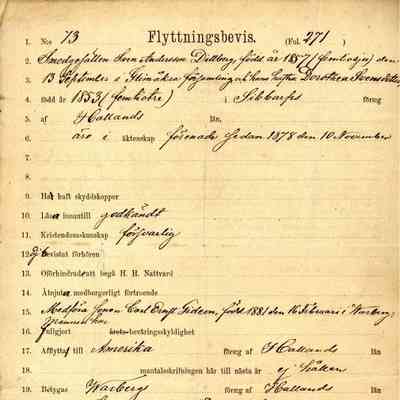 Flyttningsbevis.
1. N:o 73 (Fol. 271)
2. Smedgesällen Sven Andersson Dillberg, född år 1857 (femtiosju) den
3. 13 September i Glimåkra församling, och hans hustru Dorothea Svensdotter,
4. född år 1853 (femtiotre) i Sibbarps föreg
5. af Hallands län.
6. äro i äktenskap förenade sedan 1878 den 10 November
7.
8.
9. Har haft skyddskoppor
10. Läser innantill godkändt
11. Kristendomskunskap försvarlig
12. bevistat förhören
13. Oförhindrad att begå H. H. Nattvard
14. Åtnjuter medborgerligt förtroende
15. Medföra sonen Carl Ernst Gideon, född 1881 den 16 Februari i Warberg,
16. Fullgjort årets beväringsskyldighet
17. Afflyttat till Amerika föreg af Hallands län
18. mantalsskrifningen här till nästa år ej
19. Betygas Warbergs föreg af Hallands län